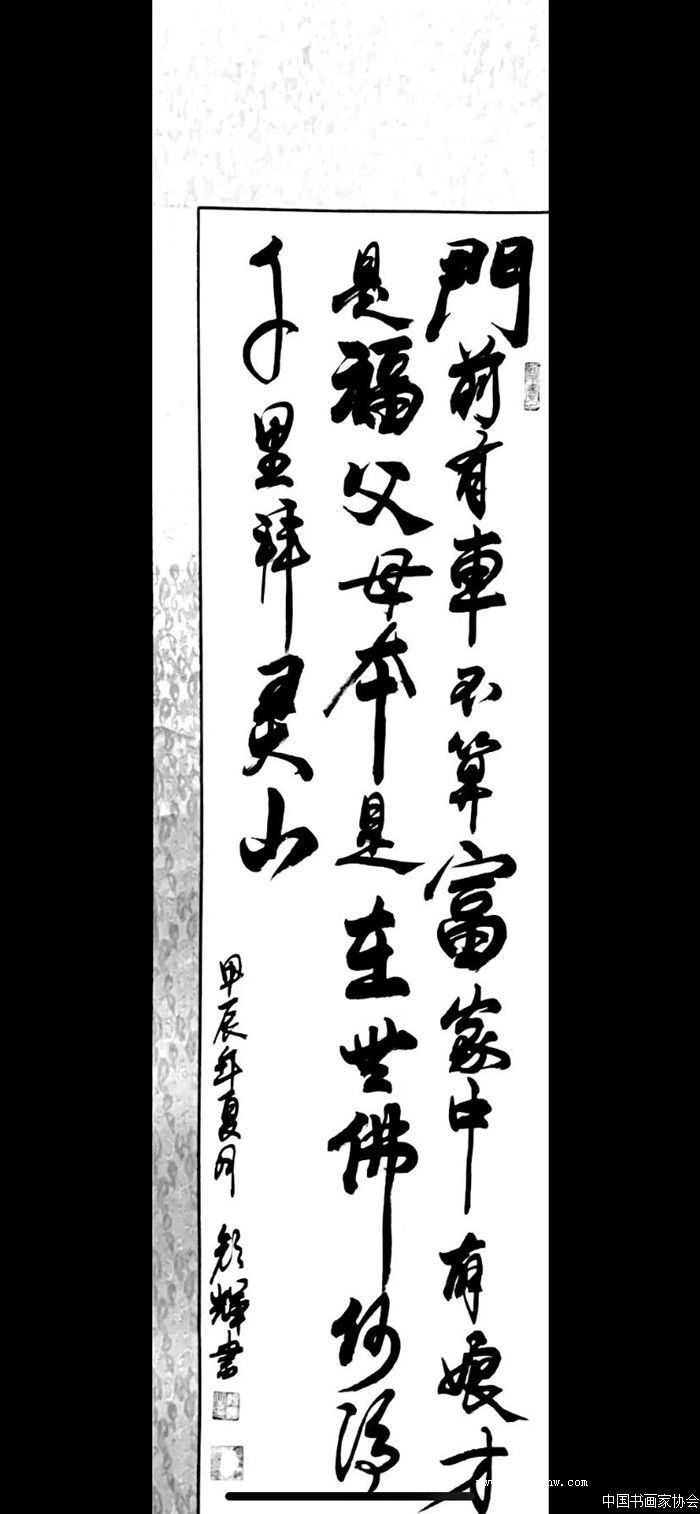 門前有車不算富家中有娘才
是福父母本是在世佛何須
千里拜灵山
甲辰年夏月
輝書
nw.com
中国书画家协会